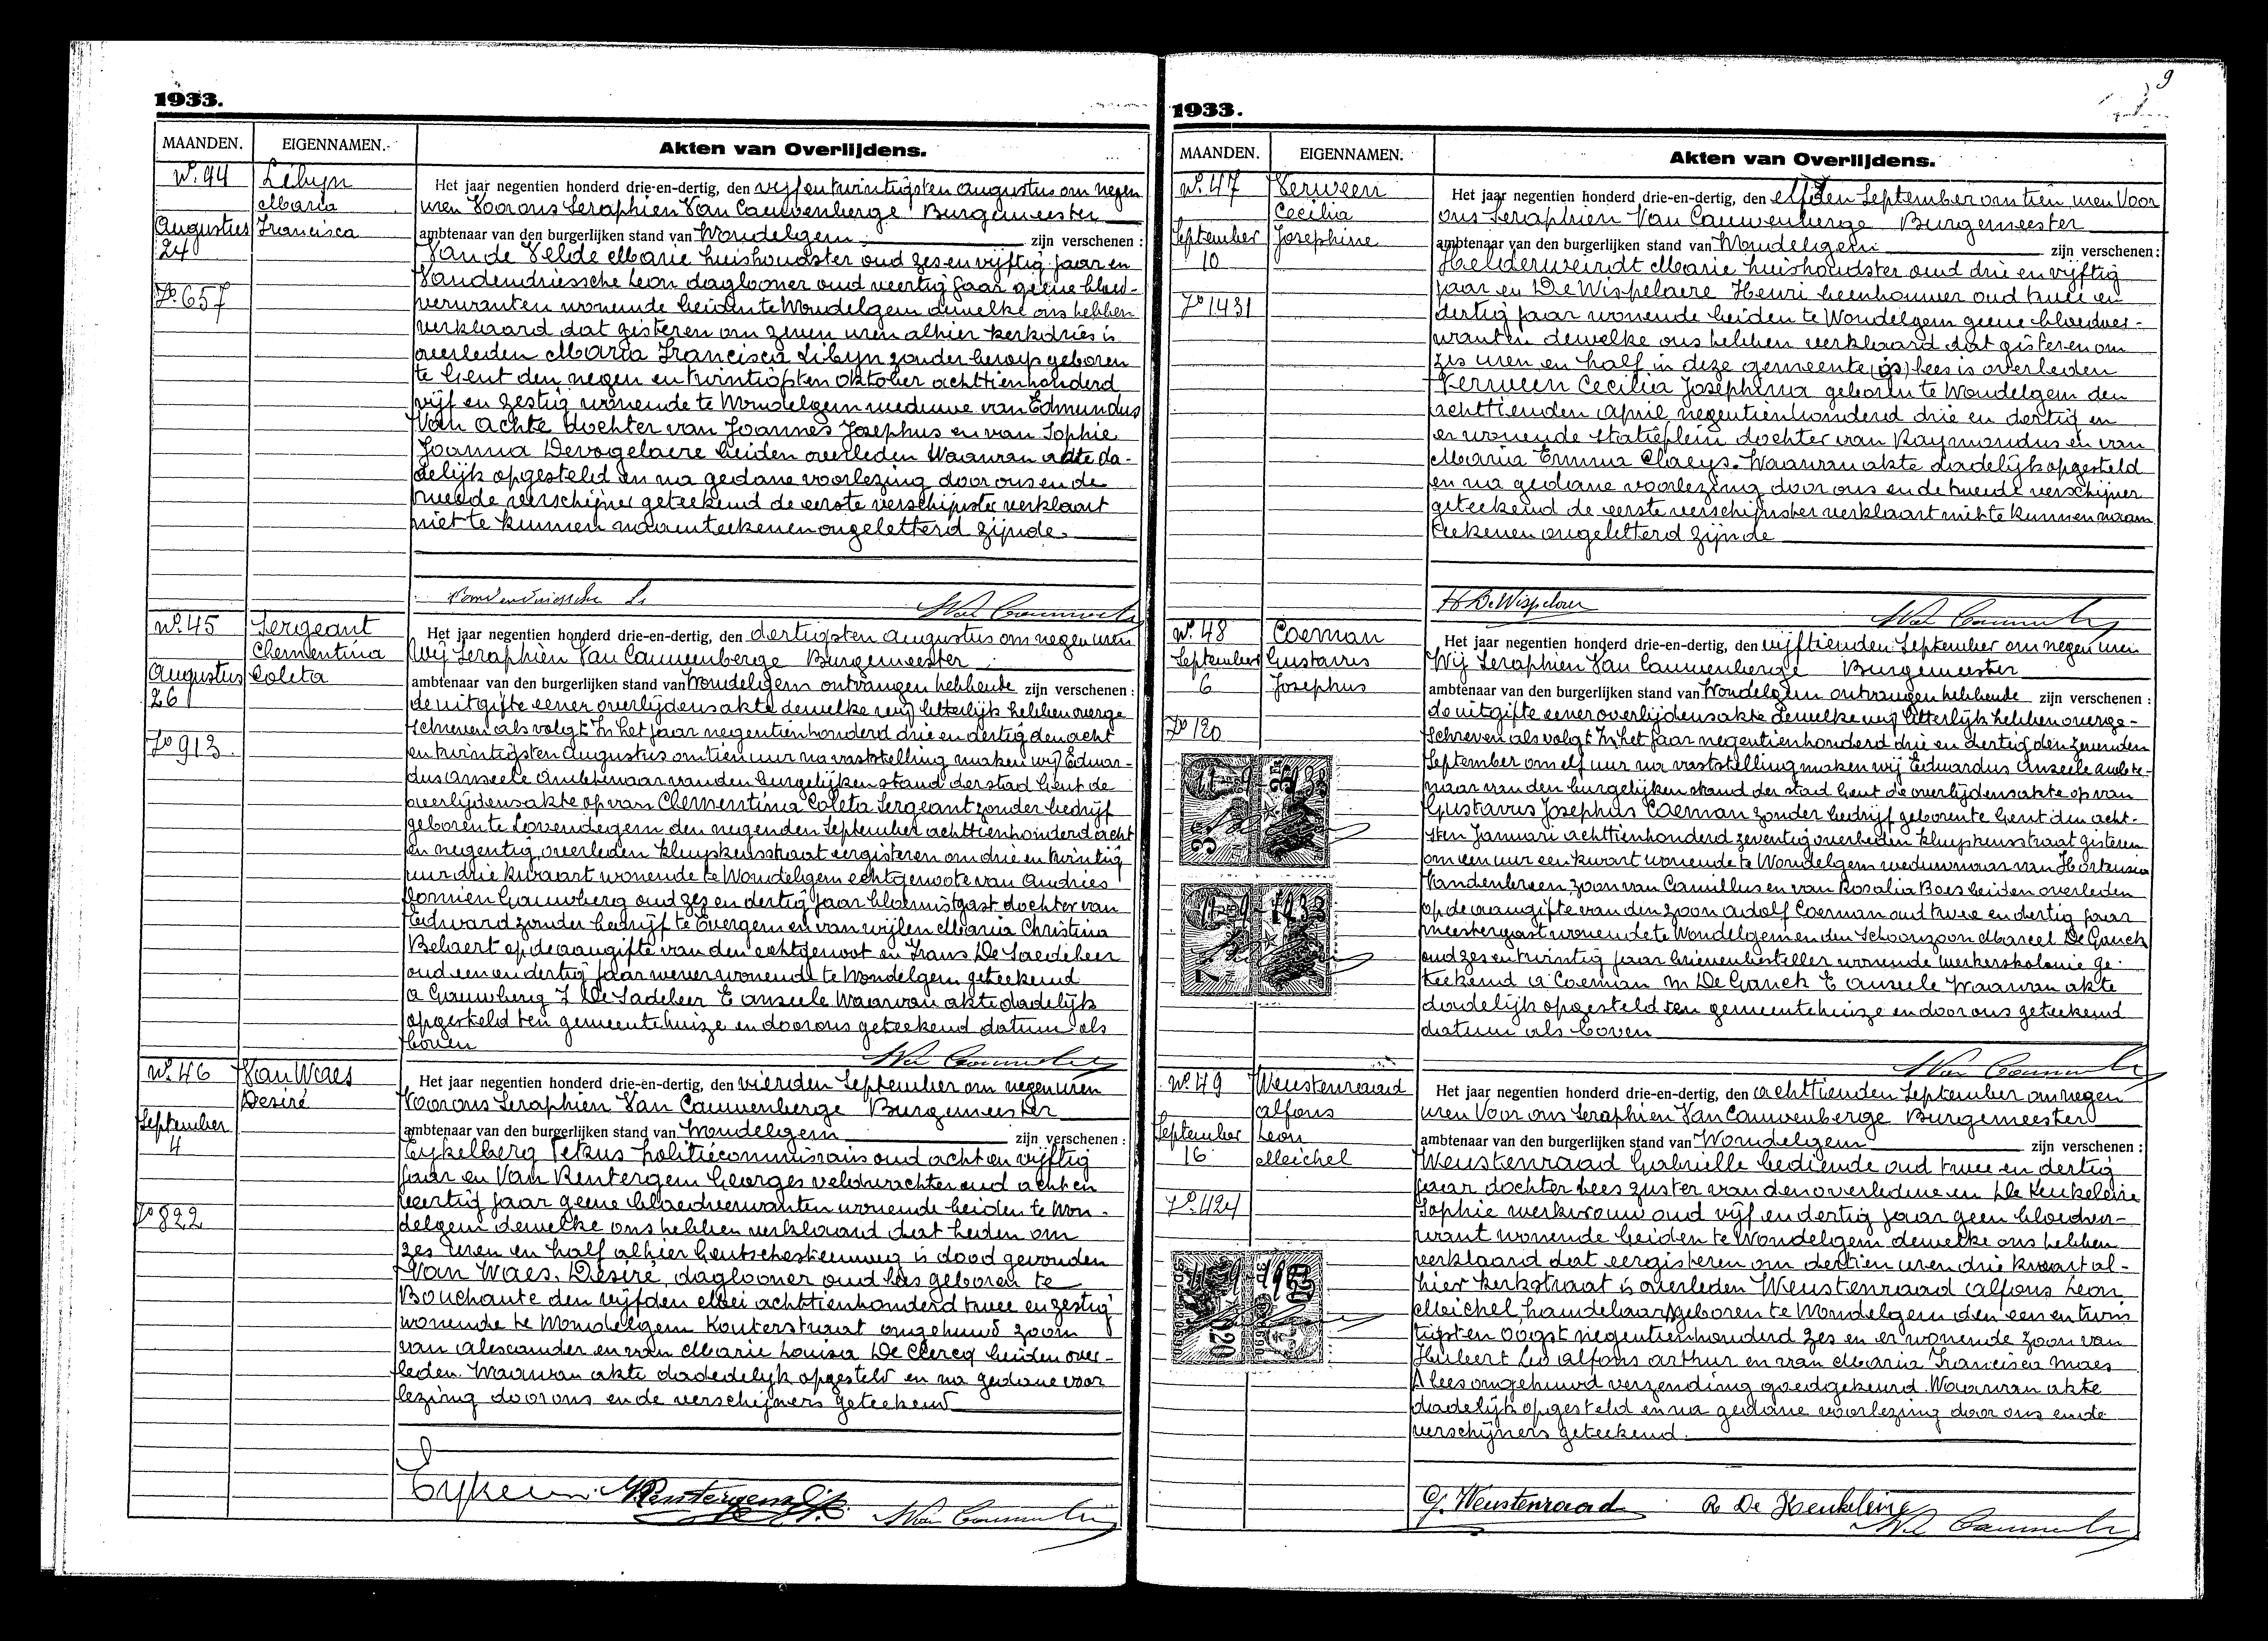 1933.
MAANDEN.
EIGENNAMEN.
Akten van Overlijdens.
No. 44
Libyn
Maria
Francisca
Augustus
24
Fo. 657
Het jaar negentien honderd drie-en-dertig, den vijf en twintigsten Augustus om negen
uren Voor ons Seraphien Van Cauwenberge Burgemeester
ambtenaar van den burgerlijken stand van Wondelgem zijn verschenen :
Van de Velde Marie huishoudster oud zes en vijftig jaar en
Vandendriessche Leon daglooner oud veertig jaar geene bloed-
verwanten wonende beiden te Wondelgem dewelke ons hebben
verklaard dat gisteren om zeven uren alhier Kerkdries is
overleden Maria Francisca Libyn zonder beroep geboren
te Gent den negen en twintigsten Oktober achttienhonderd
vijf en zestig wonende te Wondelgem weduwe van Edmundus
Van Achte dochter van Joannes Josephus en van Sophie
Joanna Devogelaere beiden overleden Waarvan akte da-
delijk opgesteld en na gedane voorlezing door ons en de
tweede verschijner geteekend de eerste verschijnster verklaart
niet te kunnen naamteekenen ongeletterd zijnde.
Vandendriessche L.
No. 45
Sergeant
Clementina
Coleta
Augustus
26
Fo 913.
Het jaar negentien honderd drie-en-dertig, den dertigsten Augustus om negen uren
Wij Seraphien Van Cauwenberge Burgemeester
ambtenaar van den burgerlijken stand van Wondelgem ontvangen hebbende zijn verschenen :
de uitgifte eener overlijdensakte dewelke wij letterlijk hebben overge
schreven als volgt: In het jaar negentienhonderd drie en dertig den acht
en twintigsten Augustus om tien uur na vaststelling maken wij Eduar-
dus Anseele Ambtenaar van den burgelijken stand der stad Gent de
overlijdensakte op van Clementina Coleta Sergeant zonder bedrijf
geboren te Lovendegem den negenden September achttienhonderd acht
en negentig overleden Kluyskensstraat eergisteren om drie en twintig
uur drie kwaart wonende te Wondelgem echtgenoote van Andries
Domien Gauwberg oud zes en dertig jaar bloemistgast dochter van
Edward zonder bedrijf te Evergem en van wijlen Maria Christina
Behaert op de aangifte van den echtgenoot en Frans De Saedeleer
oud een en dertig jaar wever wonende te Wondelgem geteekend
a Gauwberg F De Sadeleer E Anseele Waarvan akte dadelijk
opgesteld ten gemeentehuize en door ons geteekend datum als
boven
No. 46
Van Waes
Desiré
September
4
Fo 822
Het jaar negentien honderd drie-en-dertig, den vierden September om negen uren
Voor ons Seraphien Van Cauwenberge Burgemeester
ambtenaar van den burgerlijken stand van Wondelgem zijn verschenen :
Eykelberg Petrus politiecommissaris oud acht en vijftig
jaar en Van Rentergem Georges veldwachter oud acht en
veertig jaar geene bloedverwanten wonende beiden te Won-
delgem dewelke ons hebben verklaard dat heden om
zes uren en half alhier Gentschesteenweg is dood gevonden
Van Waes. Desiré, daglooner oud lees geboren te
Bouchaute den vijfden Mei achttienhonderd twee en zestig
wonende te Wondelgem Kouterstraat ongehuwd zoon
van Alexander en van Marie Louisa De Clercq beiden over-
leden. Waarvan akte dadedelyk opgesteld en na gedane voor
lezing door ons en de verschijners geteekend
1933.
9
MAANDEN.
EIGENNAMEN.
Akten van Overlijdens.
No. 47
Verween
Cecilia
Josephine
September
10
Fo 1431
Het jaar negentien honderd drie-en-dertig, den elfden September om tien uren Voor
ons Seraphien Van Cauwenberge Burgemeester
ambtenaar van den burgerlijken stand van Wondelgem zijn verschenen :
Helderweirdt Marie huishoudster oud drie en vijftig
jaar en De Wispelaere Henri beenhouwer oud twee en
dertig jaar wonende beiden te Wondelgem geene bloedver-
wanten dewelke ons hebben verklaard dat gisteren om
zes uren en half in deze gemeente (is) lees is overleden
Verween Cecilia Josephina geboren te Wondelgem den
achttienden April negentienhonderd drie en dertig en
er wonende Statieplein dochter van Raymondus en van
Maria Emma Claeys. Waarvan akte dadelijk opgesteld
en na gedane voorlezing door ons en de tweede verschijner
geteekend de eerste verschijnster verklaart niet te kunnen naam
teekenen ongeletterd zijnde
H. De Wispelaere
No. 48
Coeman
Gustavus
Josephus
September
6
Fo 120
Het jaar negentien honderd drie-en-dertig, den vijftienden September om negen uren
Wij Seraphien Van Cauwenberge Burgemeester
ambtenaar van den burgerlijken stand van Wondelgem ontvangen hebbende zijn verschenen :
de uitgifte eener overlijdensakte dewelke wij letterlijk hebben overge-
schreven als volgt: In het jaar negentienhonderd drie en dertig den zevenden
September om elf uur na vaststelling maken wij Eduardus Anseele Ambte-
naar van den burgelijken stand der stad Gent de overlijdensakte op van
Gustavus Josephus Coeman zonder bedrijf geboren te Gent den acht-
sten Januari achttienhonderd zeventig overleden Kluyskensstraat gisteren
om een uur een kwart wonende te Wondelgem weduwnaar van Hortensia
Vandenbreen, zoon van Camillus en van Rosalia Baes beiden overleden
op de aangifte van den zoon Adolf Coeman oud twee en dertig jaar
meestergast wonende te Wondelgem en den Schoonzoon Marcel De Ganck
oud zes en twintig jaar brievenbesteller wonende Werkerskolonie ge-
teekend a Coeman M De Ganck E Anseele Waarvan akte
dadelijk opgesteld ten gemeentehuize en door ons geteekend
datum als boven
No. 49
Weustenraad
Alfons
Leon
Meichel
September
16
Fo. 424
Het jaar negentien honderd drie-en-dertig, den achttienden September om negen
uren Voor ons Seraphien Van Cauwenberge Burgemeester
ambtenaar van den burgerlijken stand van Wondelgem zijn verschenen :
Weustenraad Gabrielle bediende oud twee en dertig
jaar dochter lees zuster van den overledene en De Keukeleire
Sophie werkvrouw oud vijf en dertig jaar geen bloedver-
want wonende beiden te Wondelgem dewelke ons hebben
verklaard dat eergisteren om dertien uren drie kwaart al-
hier Kerkstraat is overleden Weustenraad Alfons Leon
Meichel, handelaar geboren te Wondelgem den een en twin
tigsten Oogst negentienhonderd zes en er wonende zoon van
Hubert Leo Alfons Arthur en van Maria Francisca Maes
lees ongehuwd verzending goedgekeurd. Waarvan akte
dadelijk opgesteld en na gedane voorlezing door ons en de
verschijners geteekend.
G. Weustenraad
De Keukeleire